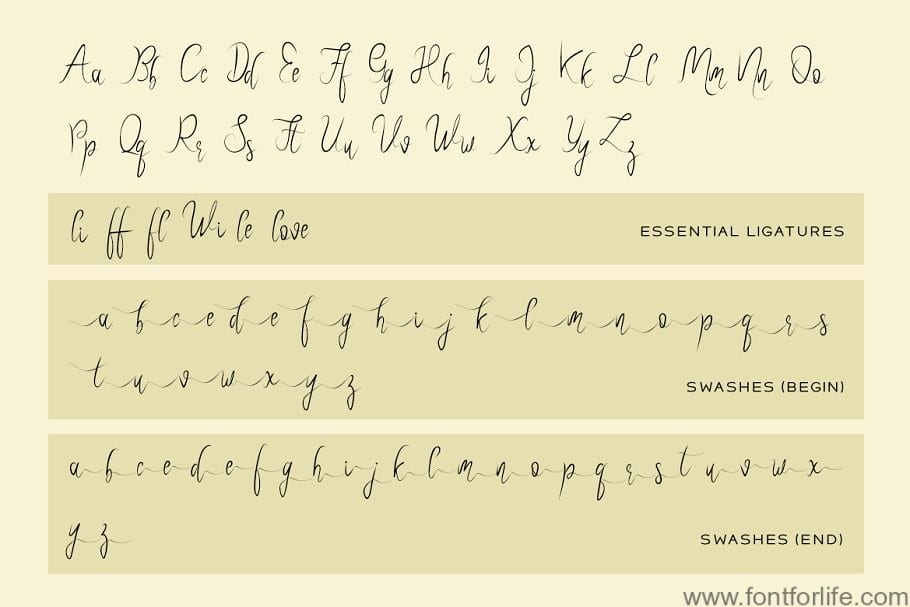 Aa Bb Cc Dd Ee Ff Gg Hh Ii Jj Kk Ll Mm Nn Oo
Pp Qq Rr Ss Tt Uu Vv Ww Xx Yy Zz
li ff fl Wi le love
ESSENTIAL LIGATURES
a b c e d e f g h i j k l m n o p q r s
t u v w x y z
SWASHES (BEGIN)
a b c e d e f g h i j k l m n o p q r s t u v w x
y z
SWASHES (END)
www.fontforlife.com